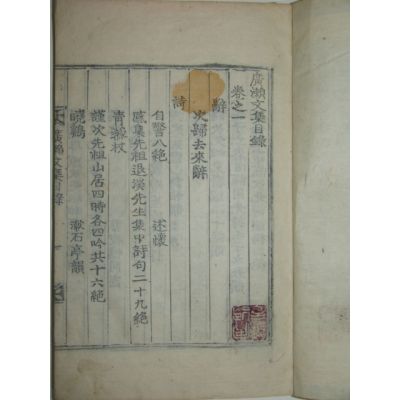 廣瀨文集目錄
卷之一
辭
次歸去來辭
詩
自警八絶 述懷
感集先祖退溪先生集中詩句二十九絶
青藜杖
謹次先祖山居四時各四吟共十六絶
曉鷄 漱石亭韻
廣瀨文集目錄 一